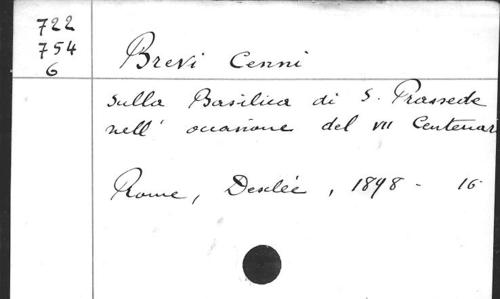 722
754
6
Brevi Cenni
sulla Basilica di S. Prassede
nell' occasione del VII Centenar
Rome, Desclée, 1898 - 16